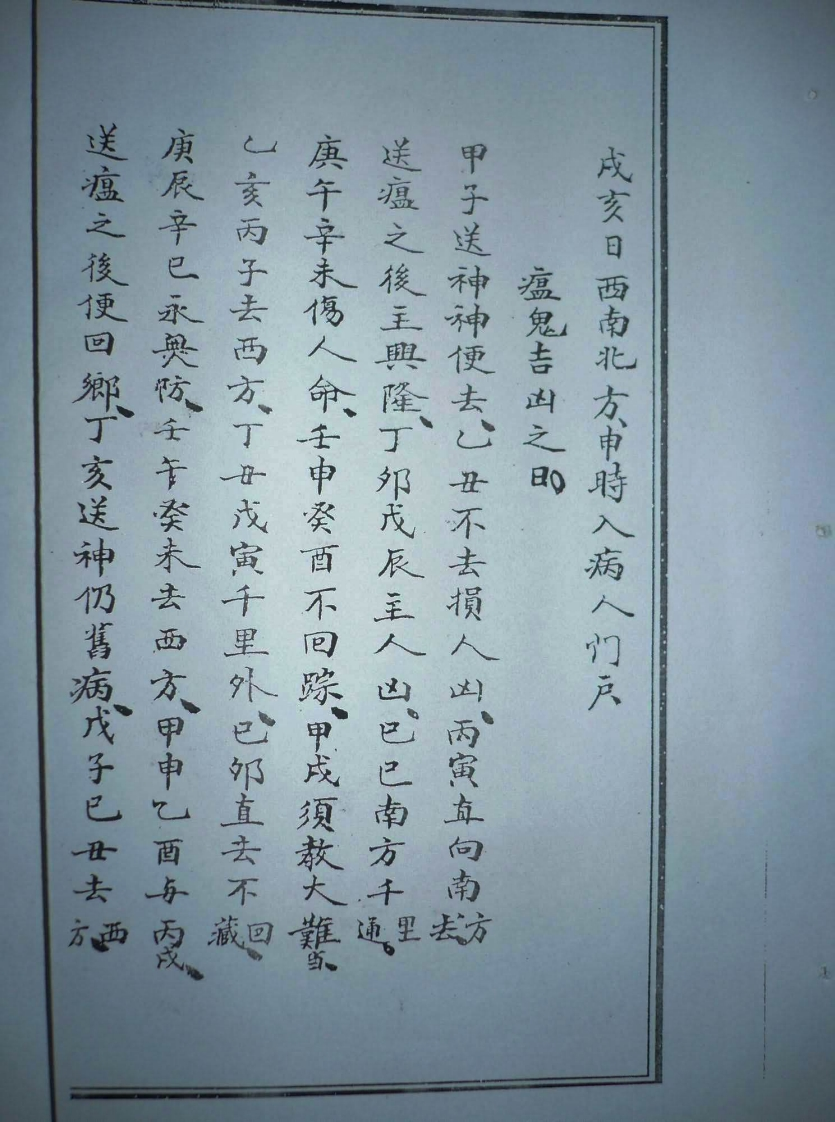 戌亥日西南北方、申時入病人门户
瘟鬼吉凶之日
甲子送神神便去、乙丑不去損人凶、丙寅直向南方去、
送瘟之後主興隆、丁卯戊辰主人凶、己巳南方千里通、
庚午辛未傷人命、壬申癸酉不回踪、甲戌須教大難当、
乙亥丙子去西方、丁丑戊寅千里外、已卯直去不回藏、
庚辰辛巳永無妨、壬午癸未去西方、甲申乙酉与丙戌、
送瘟之後便回鄉、丁亥送神仍舊病、戊子已丑去西方、